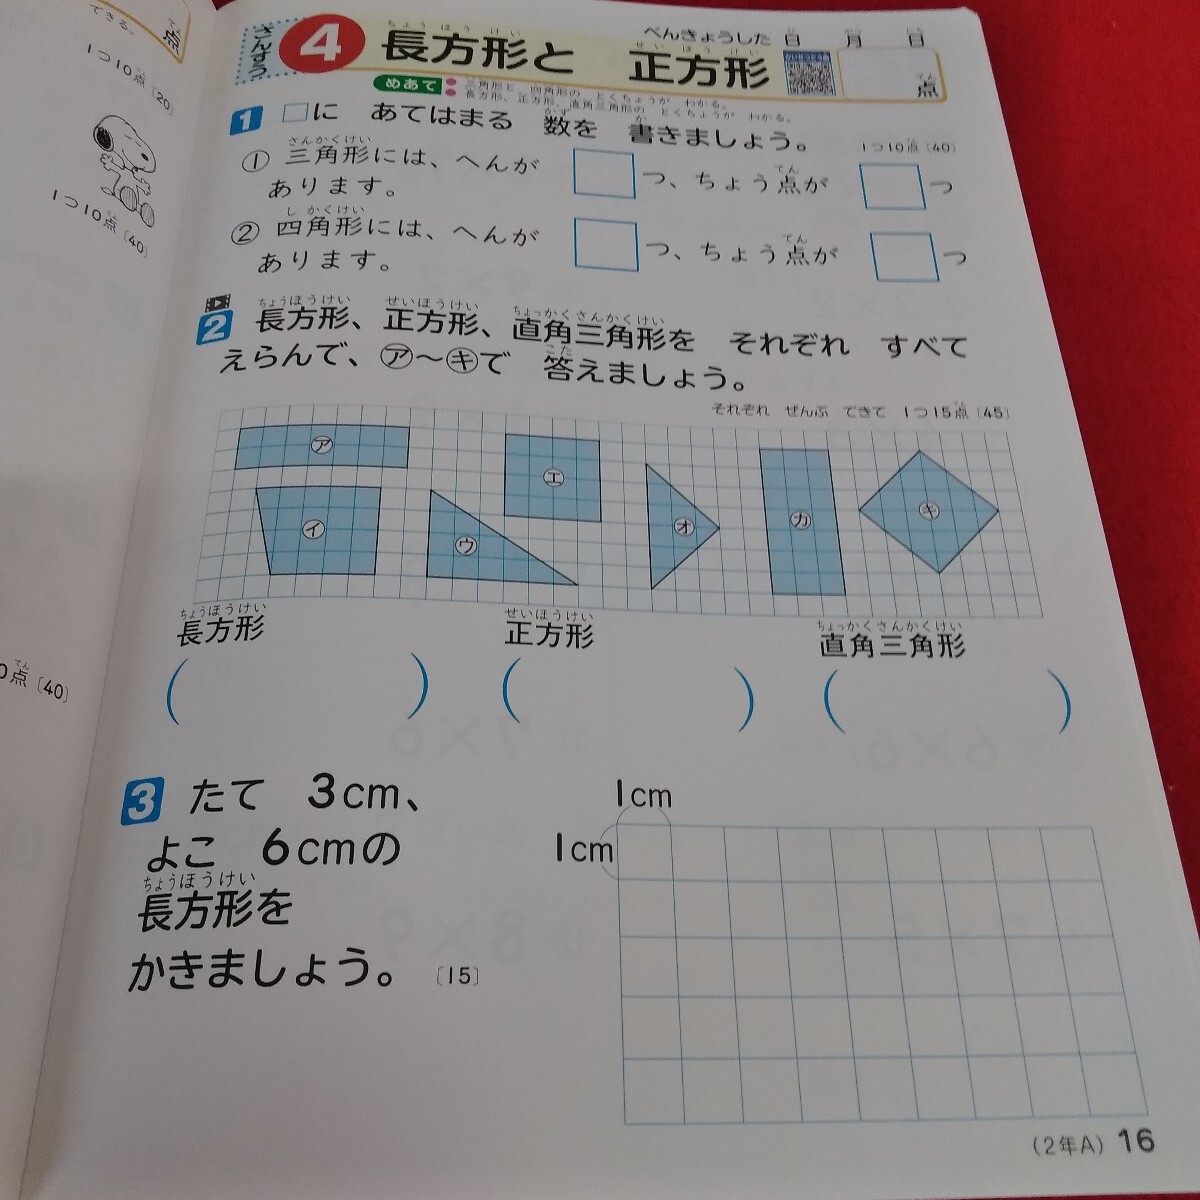 できる。
点
1つ10点〔20〕
1つ10点〔40〕
0点〔40〕
さんすう
4 長方形と 正方形
べんきょうした日 月 日
点
めあて
三角形と、四角形の とくちょうが わかる。
長方形、正方形、直角三角形の とくちょうが わかる。
1 □に あてはまる 数を 書きましょう。 1つ10点〔40〕
① 三角形には、へんが □つ、ちょう点が □つ
あります。
② 四角形には、へんが □つ、ちょう点が □つ
あります。
2 長方形、正方形、直角三角形を それぞれ すべて
えらんで、㋐～㋖で 答えましょう。
それぞれ ぜんぶ できて 1つ15点〔45〕
㋐ ㋓
㋑ ㋒ ㋔ ㋕ ㋖
長方形 正方形 直角三角形
( ) ( ) ( )
3 たて 3cm、
よこ 6cmの
長方形を
かきましょう。〔15〕
1cm
1cm
(2年A) 16